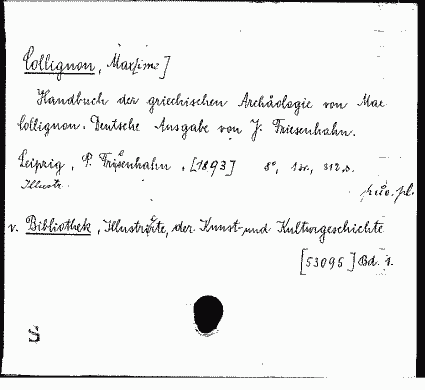 Collignon, Maxime]
Handbuch der griechischen Archäologie von Max
Collignon. Deutsche Ausgabe von J. Friesenhahn.
Leipzig, P. Friesenhahn. [1893] 8°, 1 sv., 312 s.
Illustr.
v. Bibliothek, Illustrirte, der Kunst- und Kulturgeschichte
[53095] Bd. 1.
S